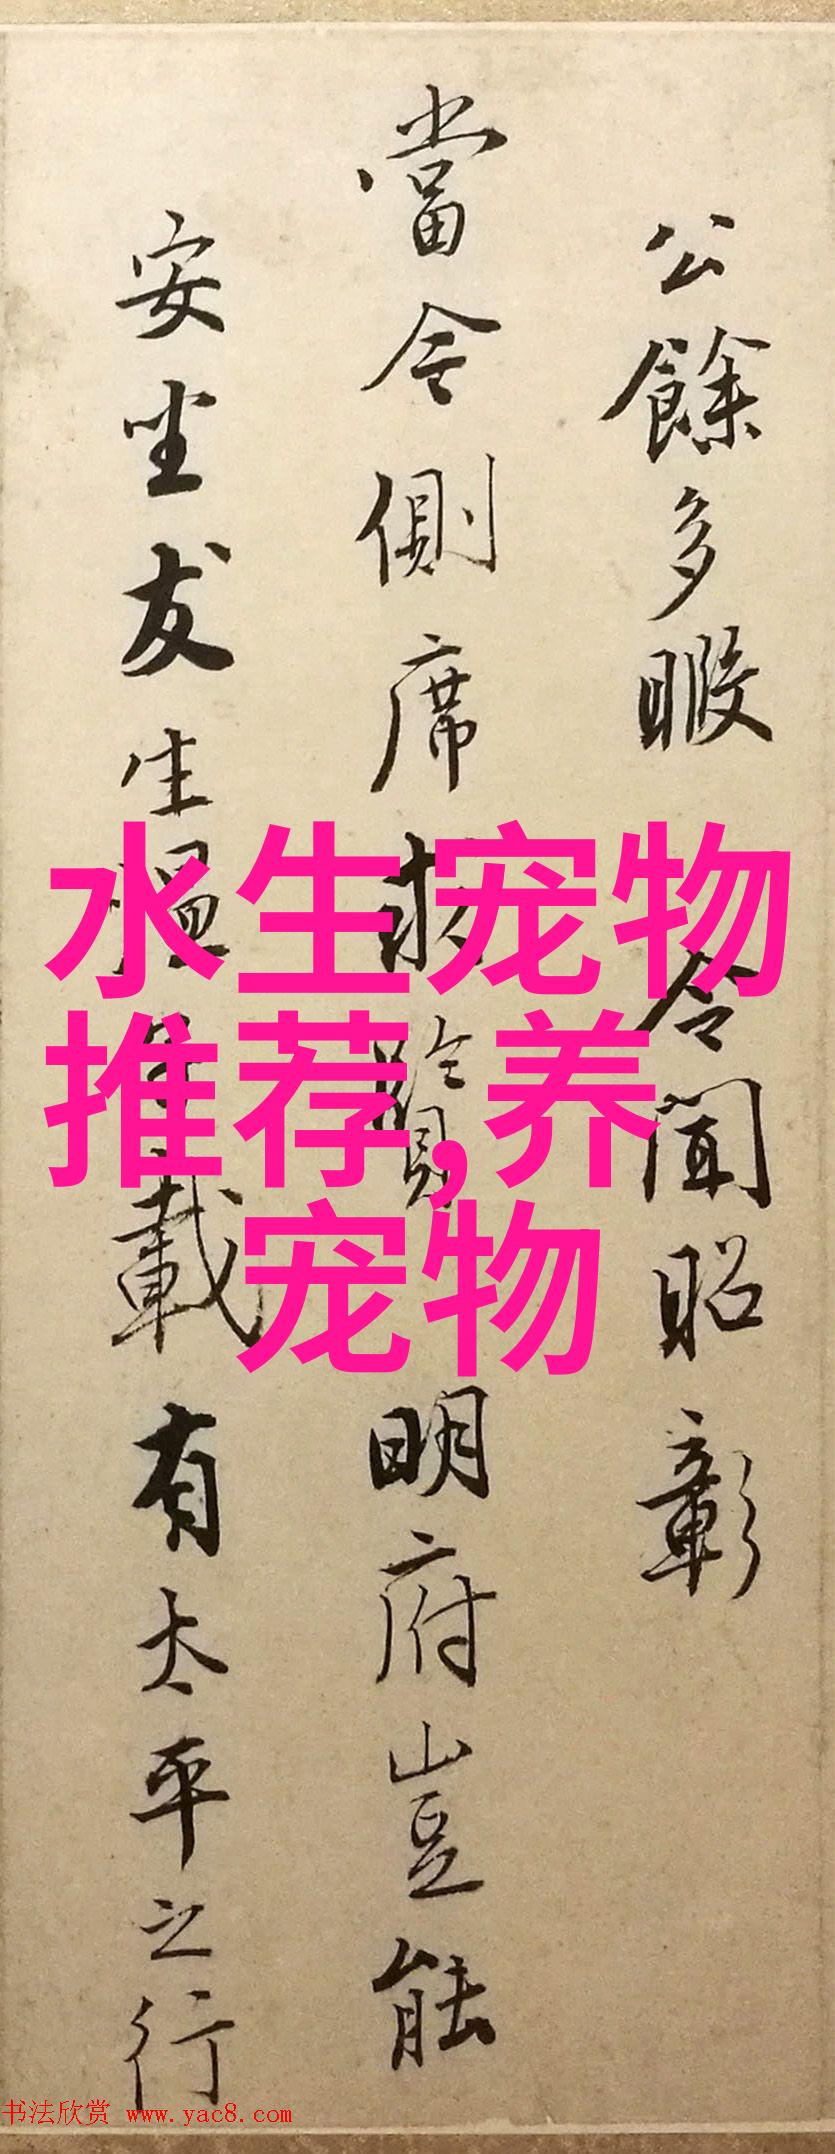 公餘多暇 令聞昭彰
當今側席求賢明府豈能
安坐友生溫載有太平之行
水生宠物
推荐,养
宠物
书法欣赏 www.yac8.com